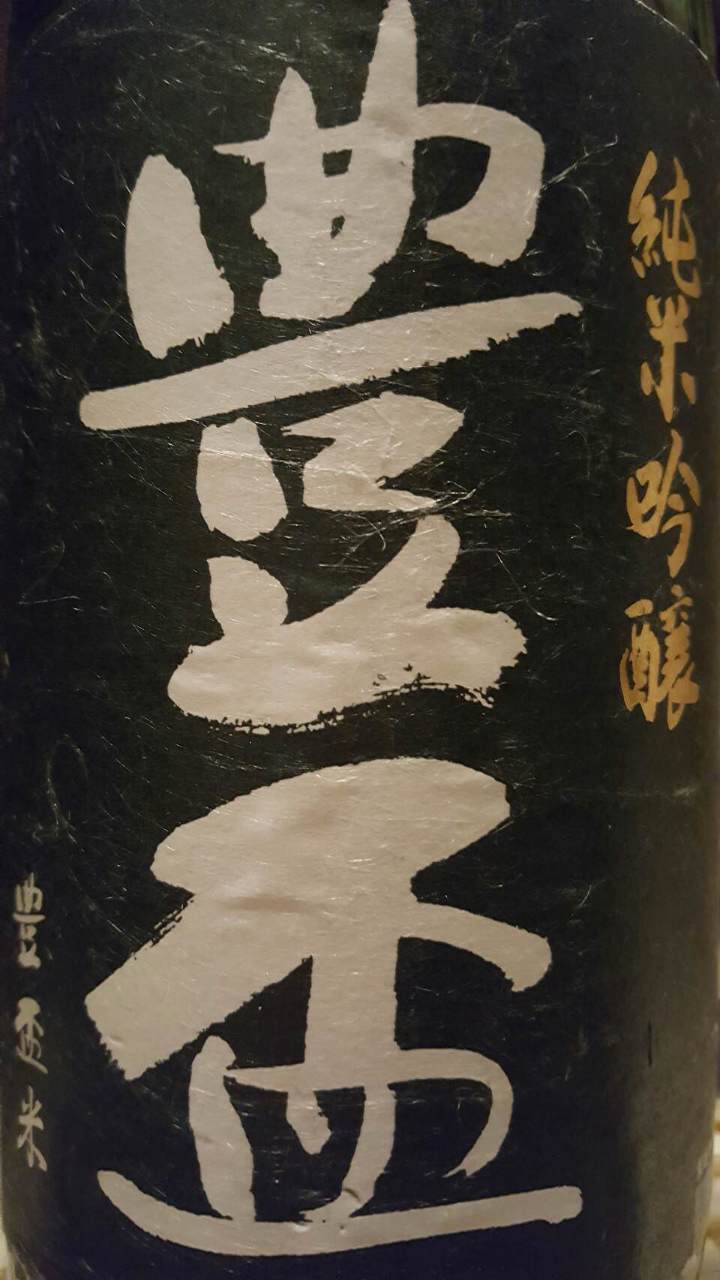 純米吟醸
豊盃
豊盃米